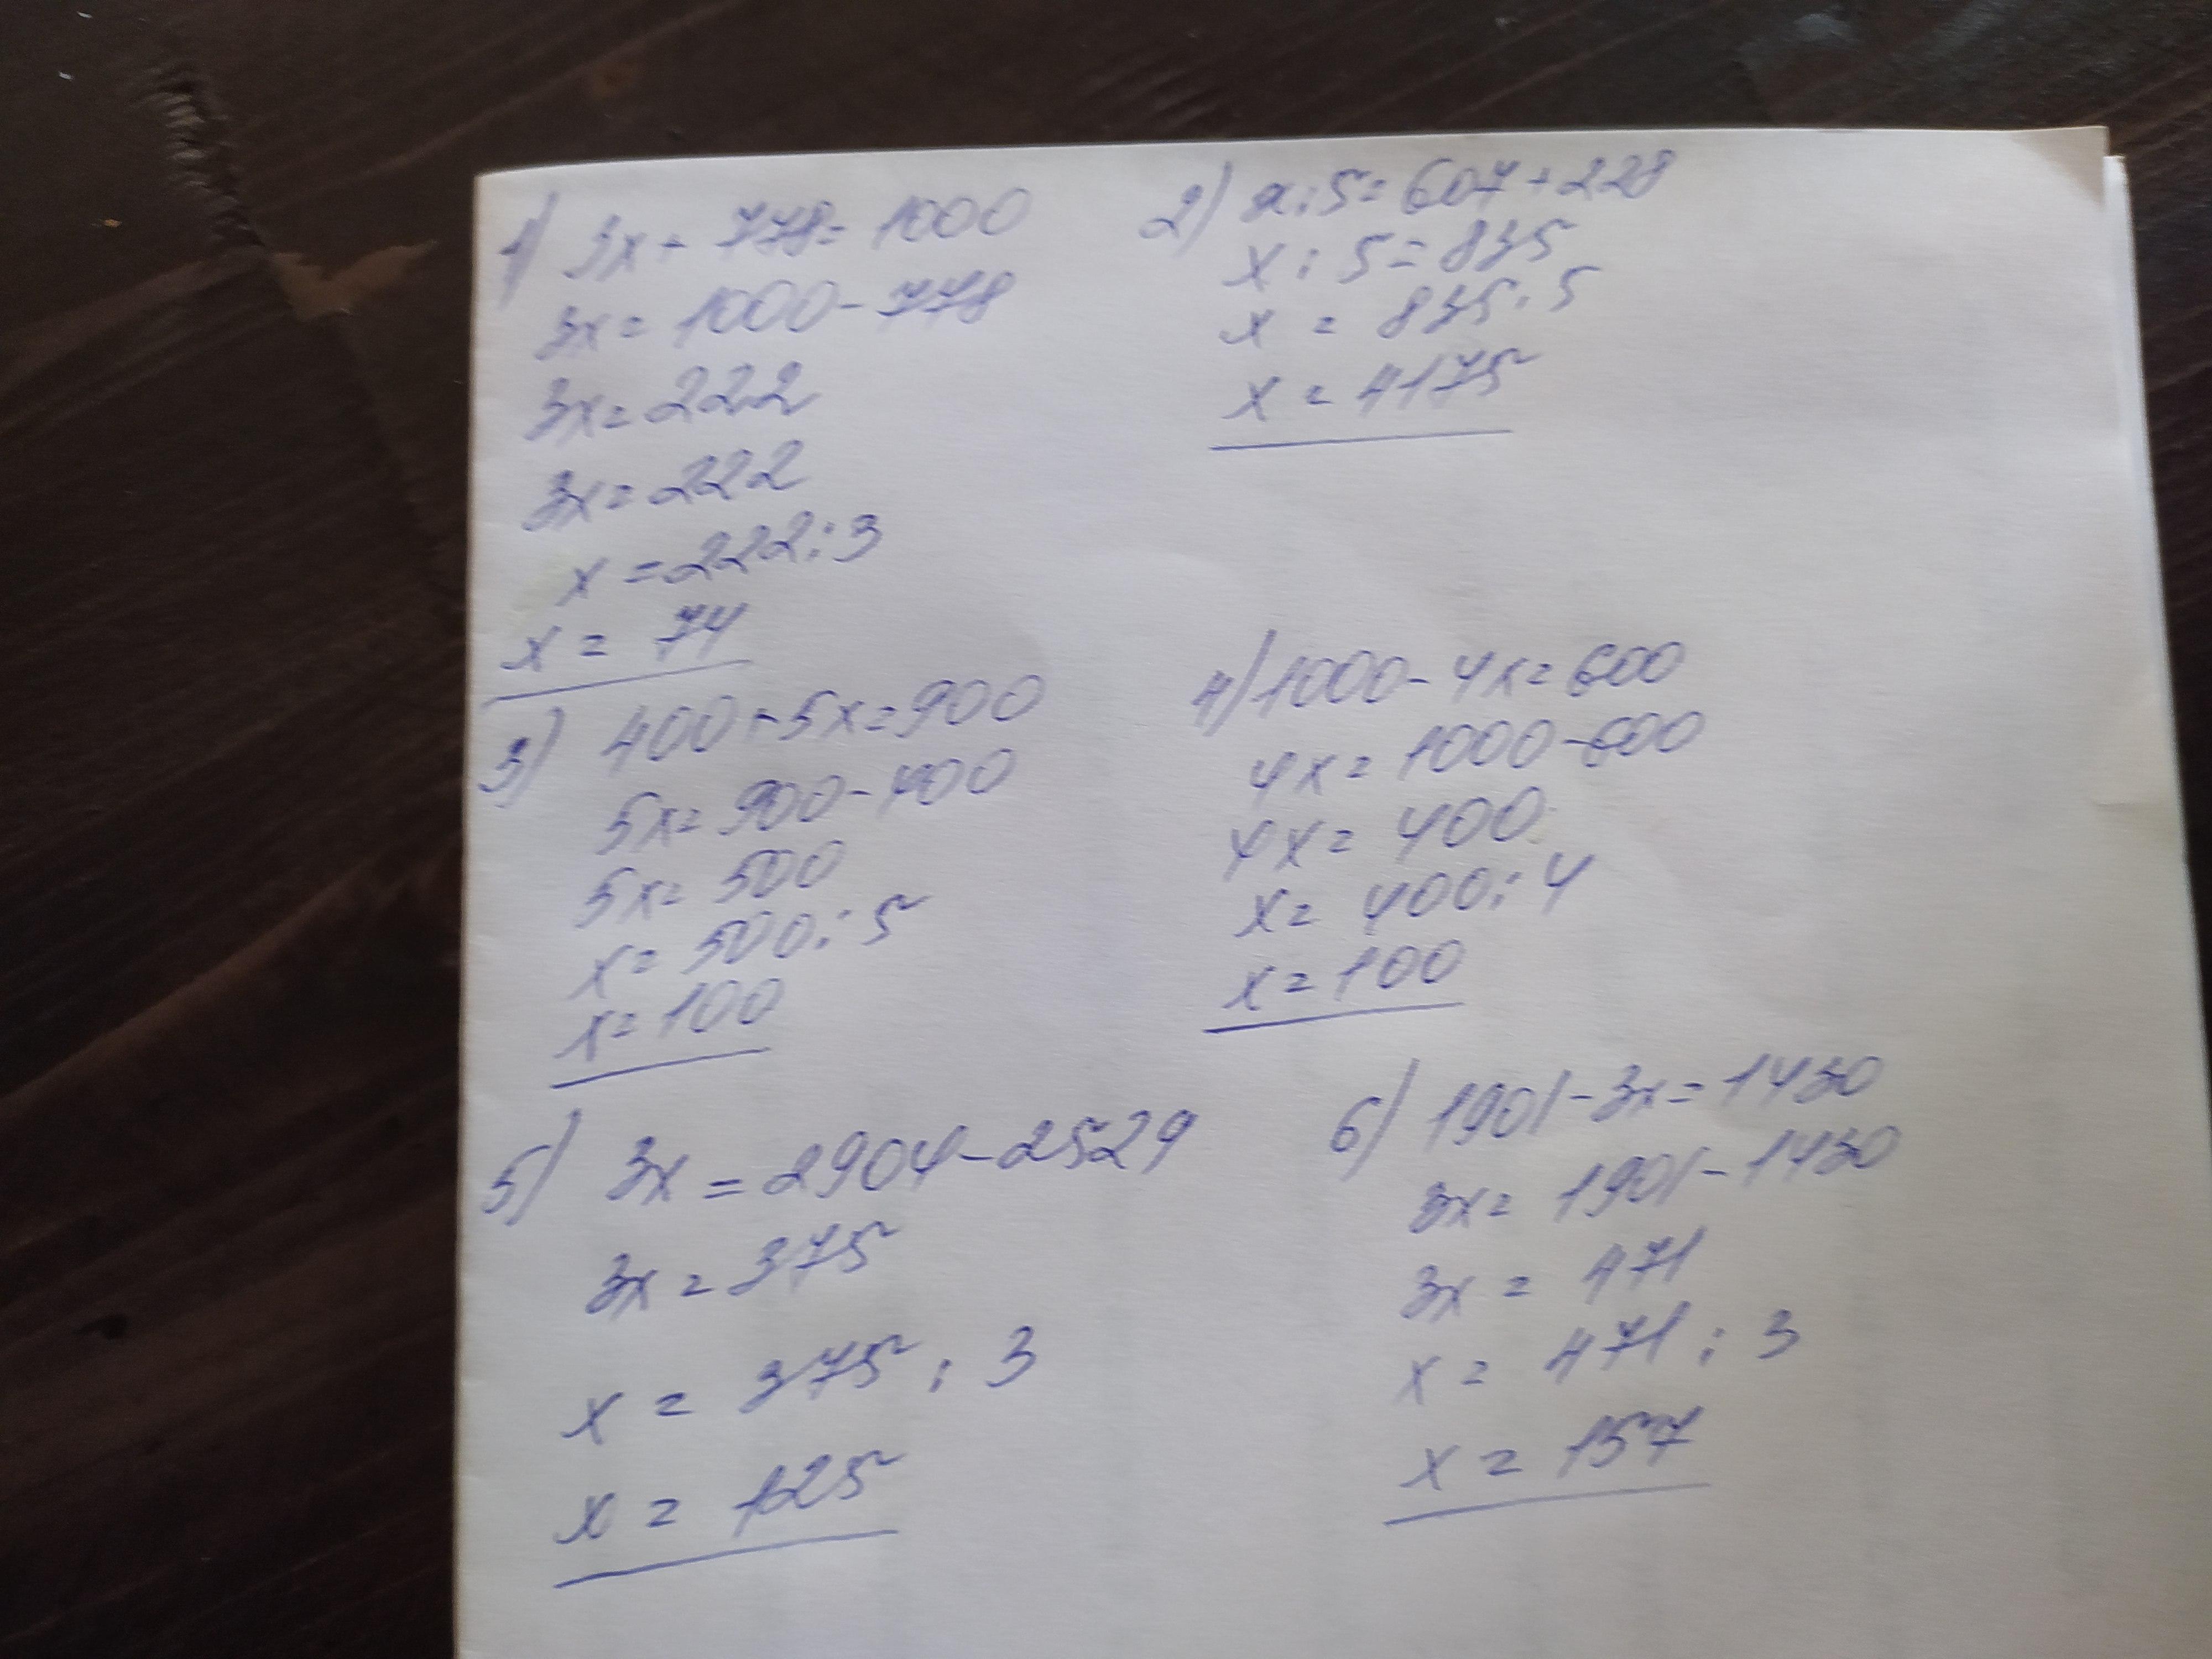 1) 3x + 778 = 1000
3x = 1000 - 778
3x = 222
3x = 222
x = 222 : 3
x = 74
2) x : 5 = 607 + 228
x : 5 = 835
x = 835 · 5
x = 4175
3) 400 + 5x = 900
5x = 900 - 400
5x = 500
x = 500 : 5
x = 100
4) 1000 - 4x = 600
4x = 1000 - 600
4x = 400
x = 400 : 4
x = 100
5) 3x = 2904 - 2529
3x = 375
x = 375 : 3
x = 125
6) 1901 - 3x = 1430
3x = 1901 - 1430
3x = 471
x = 471 : 3
x = 157